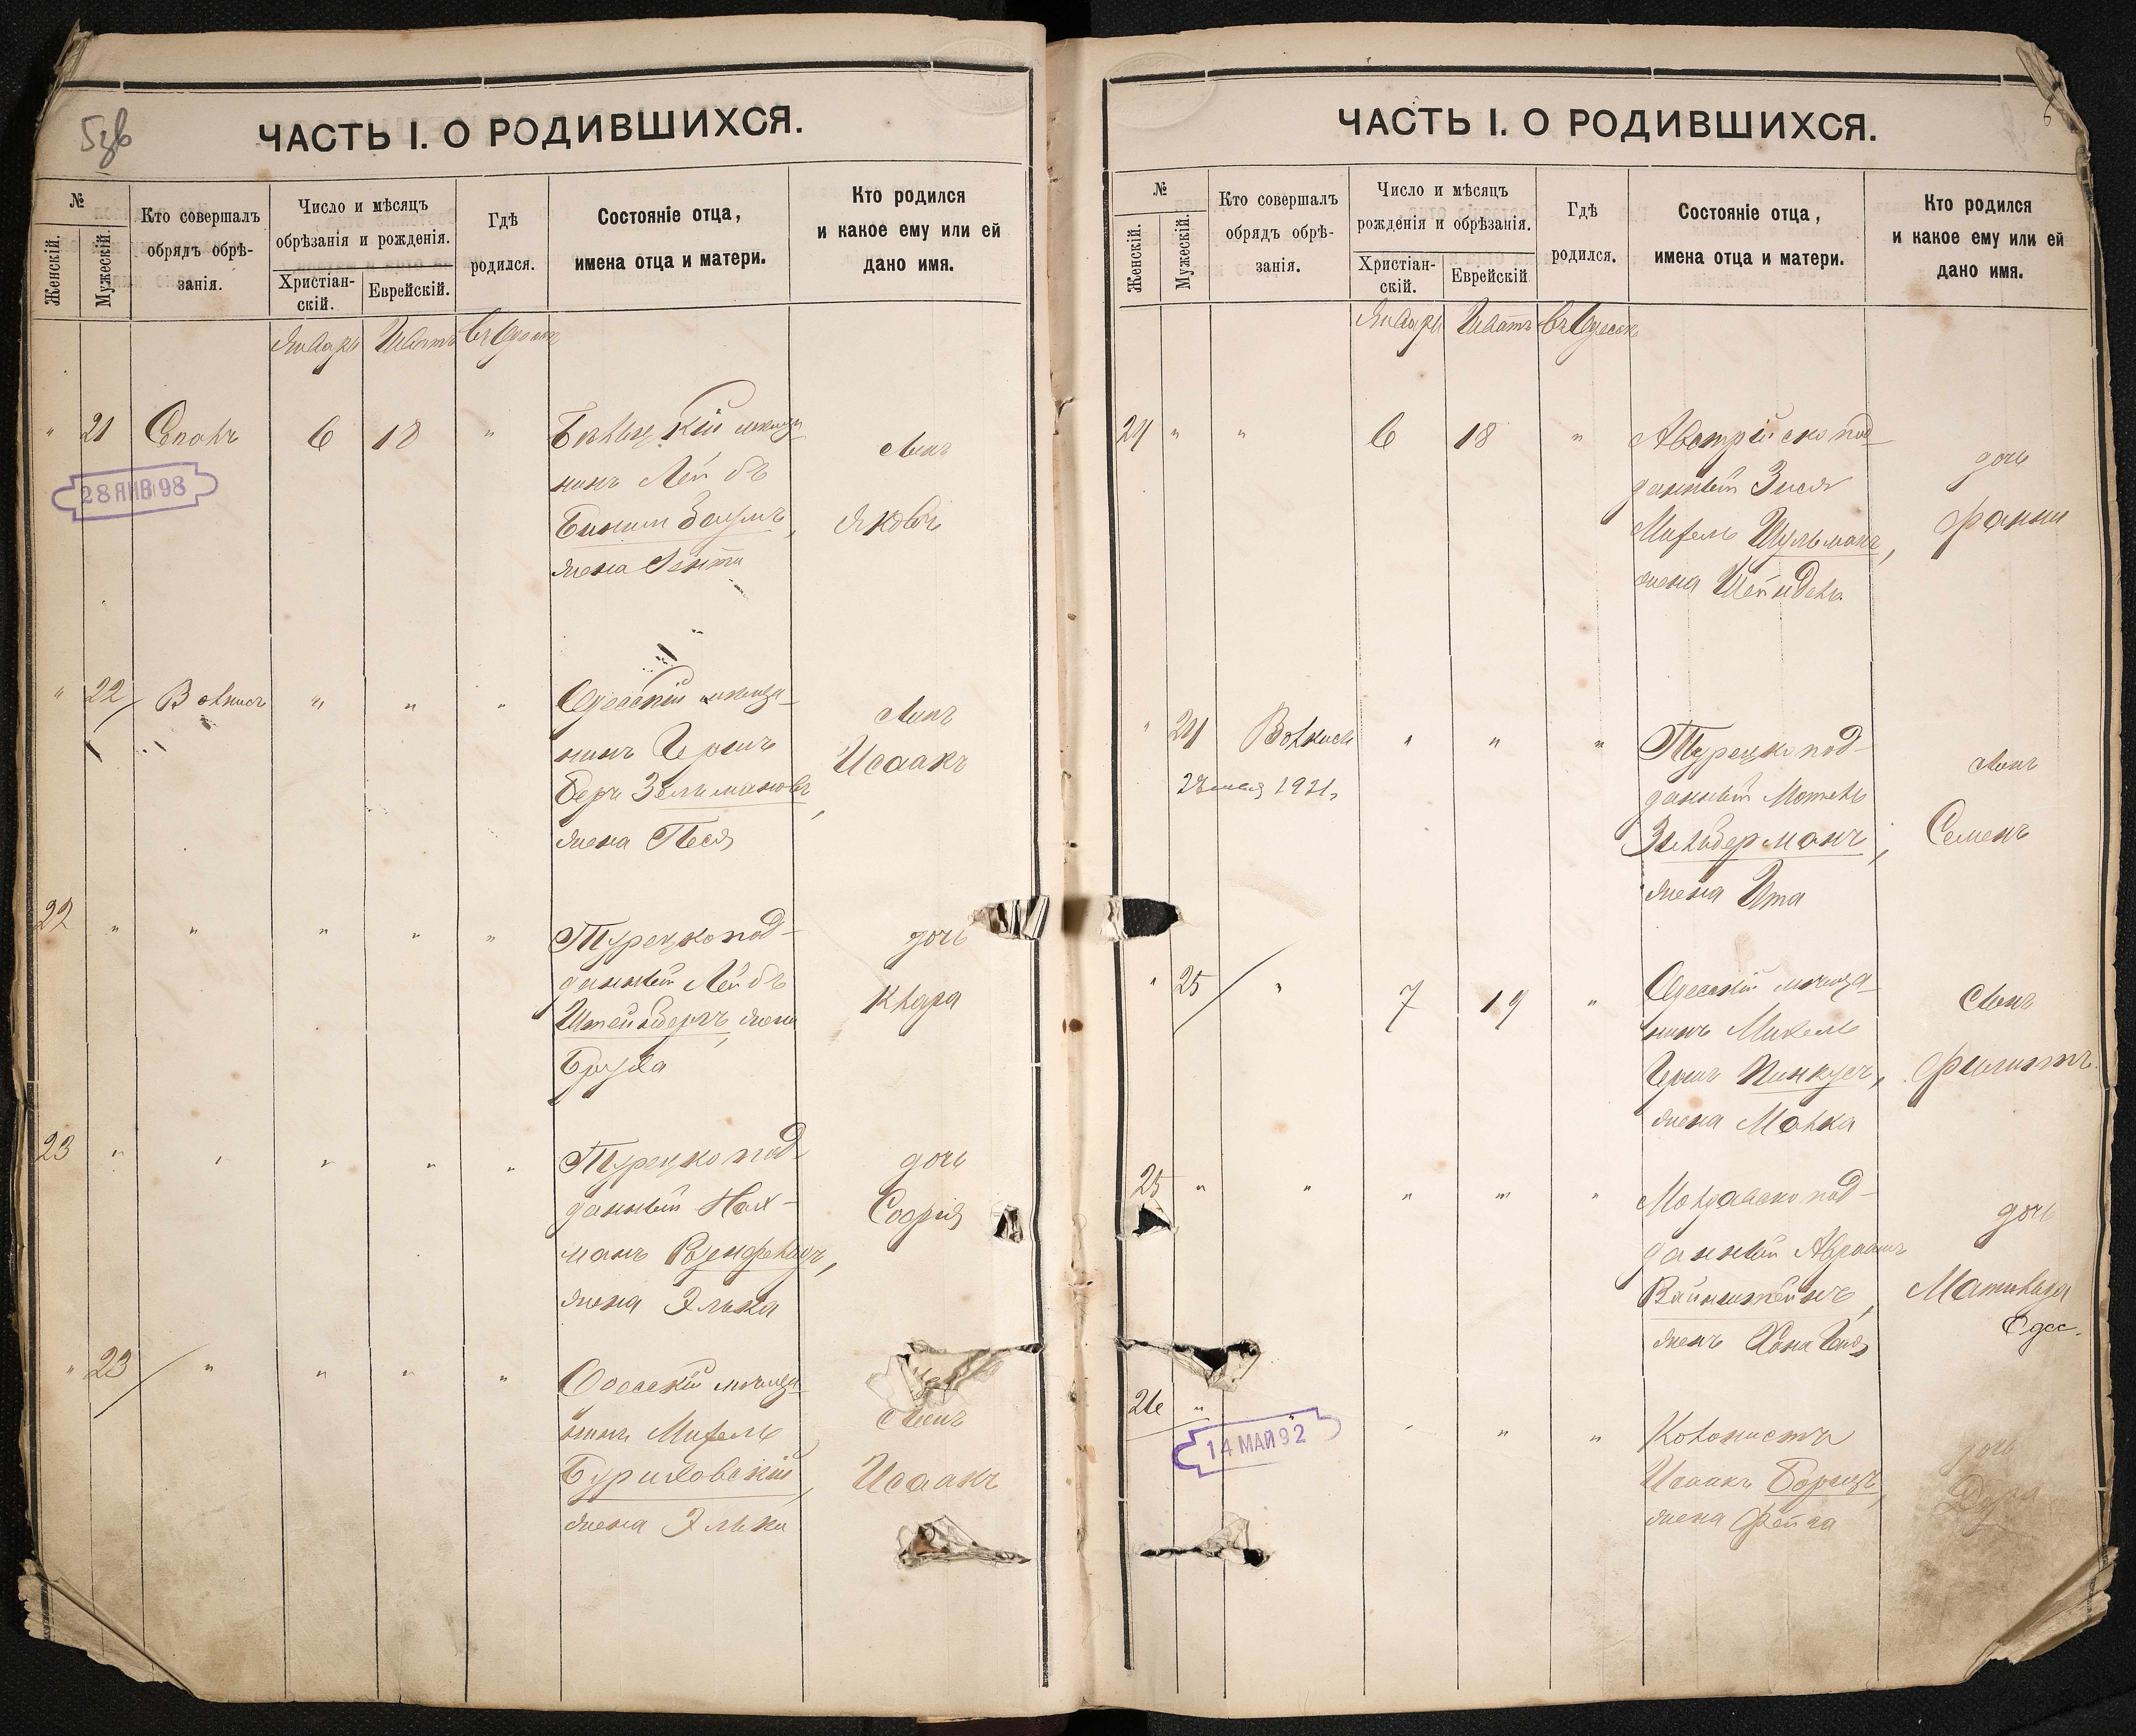 ЧАСТЬ I. О РОДИВШИХСЯ.
№
Женскій.
Мужескій.
Кто совершалъ
обрядъ обрѣ-
занія.
Число и мѣсяцъ
обрѣзанія и рожденія.
Христіан-
скій.
Еврейскій.
Гдѣ
родился.
Состояніе отца,
имена отца и матери.
Кто родился
и какое ему или ей
дано имя.
Январь Шватъ въ Одессѣ
" 21 6 18 "
мѣща
нинъ Лейбъ
жена
сынъ
Яковъ
28 ЯНВ 98
" 22 " " "
Одесскій мѣща-
нинъ Гершъ
Беръ Зельмановъ,
жена Песя
сынъ
Исаакъ
22 " " " " "
Турецкоподданный
Турецко под-
данный Лейбъ
Штейнбергъ, жена
Бруха
дочь
Клара
23 " " " " "
Турецко под
данный Нах-
манъ
жена Элька
дочь
Софія
" 23 " " " "
Одесскій мѣща
нинъ Михель
Буриховскій,
жена Элька
сынъ
Исаакъ
ЧАСТЬ I. О РОДИВШИХСЯ.
№
Женскій.
Мужескій.
Кто совершалъ
обрядъ обрѣ-
занія.
Число и мѣсяцъ
рожденія и обрѣзанія.
Христіан-
скій.
Еврейскій
Гдѣ
родился.
Состояніе отца,
имена отца и матери.
Кто родился
и какое ему или ей
дано имя.
Январь Шватъ въ Одессѣ
24 " " 6 18 "
Австрійско под-
данный Зися
Михель Шульманъ,
жена Шейндель
дочь
Фанни
" 24 " " "
1921
Турецко под-
данный Мотель
Зильберманъ,
жена Ита
сынъ
Семенъ
" 25 " 7 19 "
Одесскій мѣща-
нинъ Михель
Гершъ Пинкусъ,
жена Малка
сынъ
Филиппъ
25 " " " " "
Молдавско под-
данный Абрамъ
Вайнштейнъ,
жена Хана
дочь
Матильда
Одес.
26 " " " "
14 МАЙ 92
Колонистъ
Исаакъ
жена Фейга
дочь